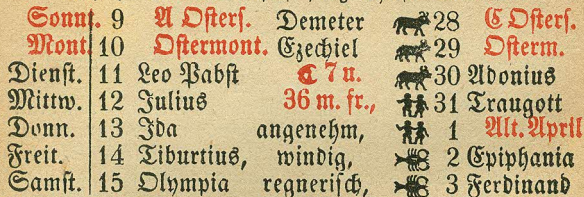 Sonnt. 9 A Osters. Demeter 28 C Osters.
Mont. 10 Ostermont. Ezechiel 29 Osterm.
Dienst. 11 Leo Pabst ☾ 7 u. 30 Adonius
Mittw. 12 Julius 36 m. fr., 31 Traugott
Donn. 13 Ida angenehm, 1 Alt. April
Freit. 14 Tiburtius, windig, 2 Epiphania
Samst. 15 Olympia regnerisch, 3 Ferdinand